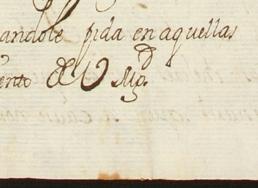 andole pida en aquellas
ento de V Mgd.